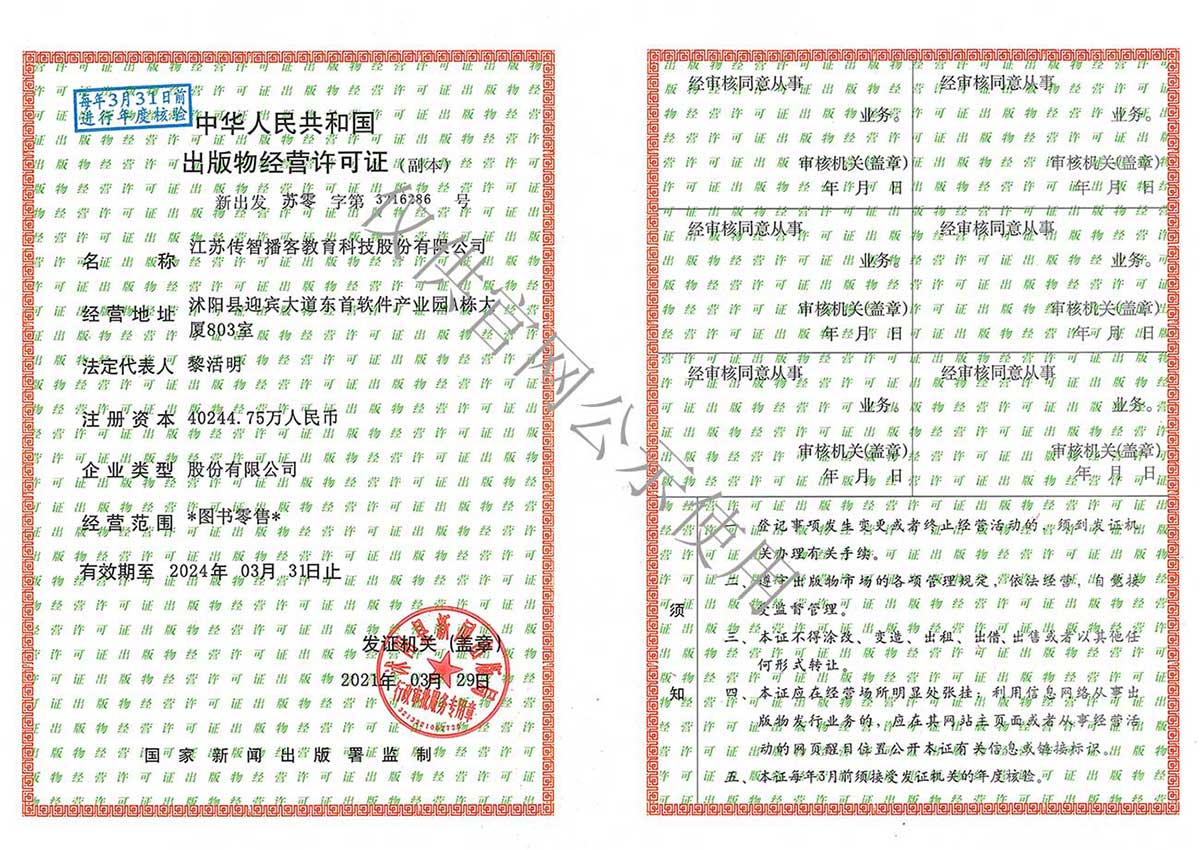 每年3月31日前
进行年度核验
中华人民共和国
出版物经营许可证(副本)
新出发 苏零 字第 3216286 号
名称 江苏传智播客教育科技股份有限公司
经营地址 沭阳县迎宾大道东首软件产业园A栋大
厦803室
法定代表人 黎活明
注册资本 40244.75万人民币
企业类型 股份有限公司
经营范围 *图书零售*
有效期至 2024年 03月 31日止
发证机关(盖章)
2021年 03月 29日
行政审批服务专用章
国家新闻出版署监制
仅供官网公示使用
经审核同意从事
业务。
审核机关(盖章)
年 月 日
经审核同意从事
业务。
审核机关(盖章)
年 月 日
经审核同意从事
业务。
审核机关(盖章)
年 月 日
经审核同意从事
业务。
审核机关(盖章)
年 月 日
经审核同意从事
业务。
审核机关(盖章)
年 月 日
经审核同意从事
业务。
审核机关(盖章)
年 月 日
须知
一、登记事项发生变更或者终止经营活动的,须到发证机
关办理有关手续。
二、遵守出版物市场的各项管理规定、依法经营,自觉接
受监督管理。
三、本证不得涂改、变造、出租、出借、出售或者以其他任
何形式转让。
四、本证应在经营场所明显处张挂;利用信息网络从事出
版物发行业务的,应在其网站主页面或者从事经营活
动的网页醒目位置公开本证有关信息或链接标识。
五、本证每年3月前须接受发证机关的年度核验。